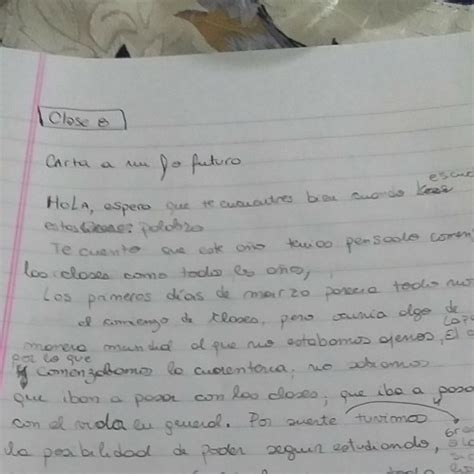 Clase 8
Carta a mi yo futuro
Hola, espero que te encuentres bien cuando
estas
Te cuento que este año tenía pensado comen
las clases como todos los años,
Los primeros días de marzo parecía todo
el comienzo de clases, pero ocurría algo de
manera mundial al que no estabamos ajenos,
por lo que
Comenzabamos la cuarentena, no sabiamos
que iban a pasar con las clases, que iba a pasar
con el vida en general. Por suerte tuvimos
la posibilidad de poder seguir estudiando,